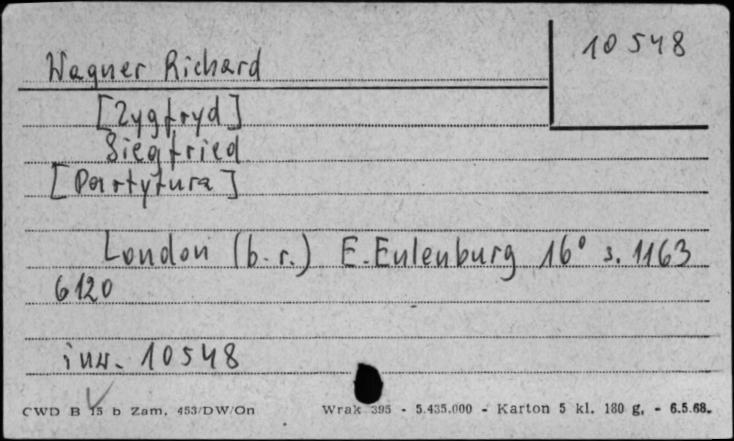 10 548
Wagner Richard
[Zygfryd]
Siegfried
[Partytura]
London (b.r.) E. Eulenburg 16° s. 1163
6120
inw. 10548
CWD B 15 b Zam. 453/DW/On Wrak 395 - 5.435.000 - Karton 5 kl. 180 g. - 6.5.68.